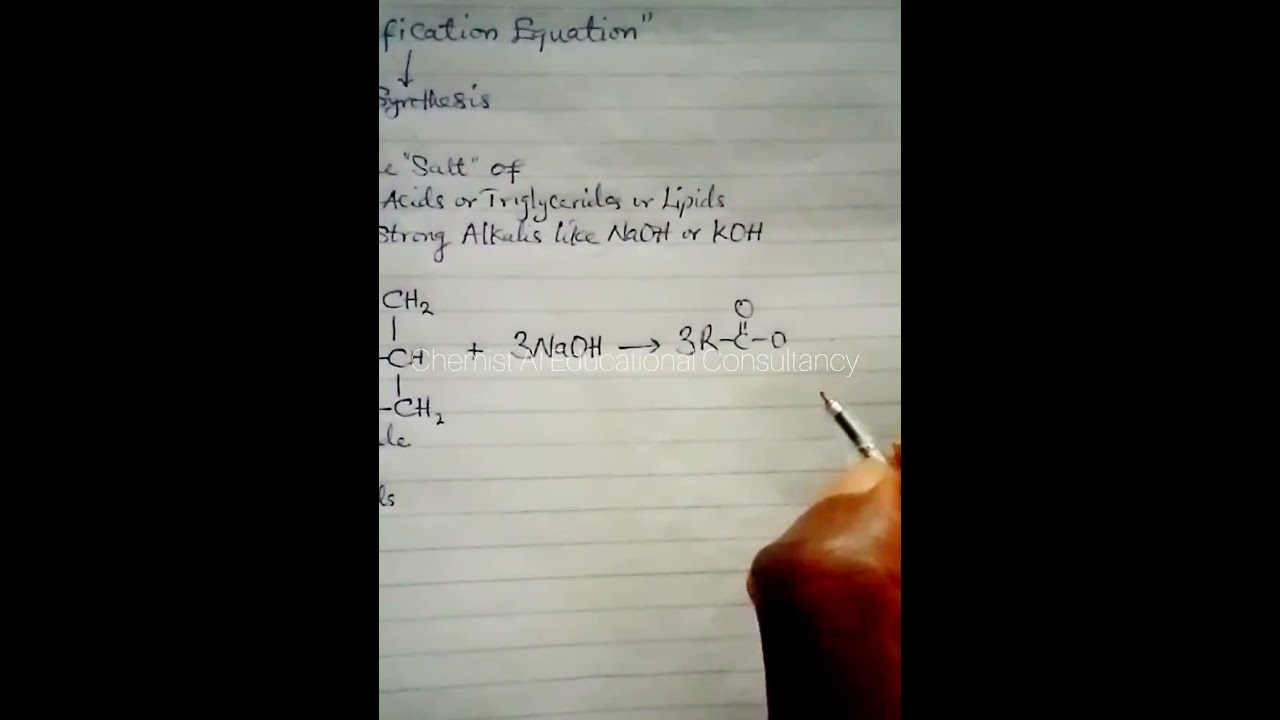 fication Equation"
↓
Synthesis
e "Salt" of
Acids or Triglycerides or Lipids
Strong Alkalis like NaOH or KOH
CH₂
|
O
-CH + 3NaOH → 3R-C-O
Chemist AI Educational Consultancy
|
-CH₂
de
ls